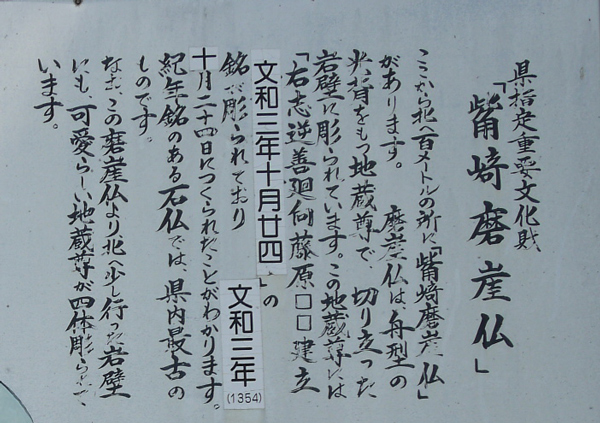 県指定重要文化財
「觜崎磨崖仏」
ここから北へ百メートルの所に「觜崎磨崖仏」
があります。 磨崖仏は舟型の
光背をもつ地蔵尊で、切り立った
岩壁に彫られています。この地蔵尊には
「右志逆善廻向藤原□□建立
文和三年十月廿四」の
銘が彫られており
文和三年
(1354)
十月二十四日につくられたことがわかります。
紀年銘のある石仏では、県内最古の
ものです。
なお、この磨崖仏より北へ少し行った岩壁
にも、可愛らしい地蔵尊が四体彫られて
います。